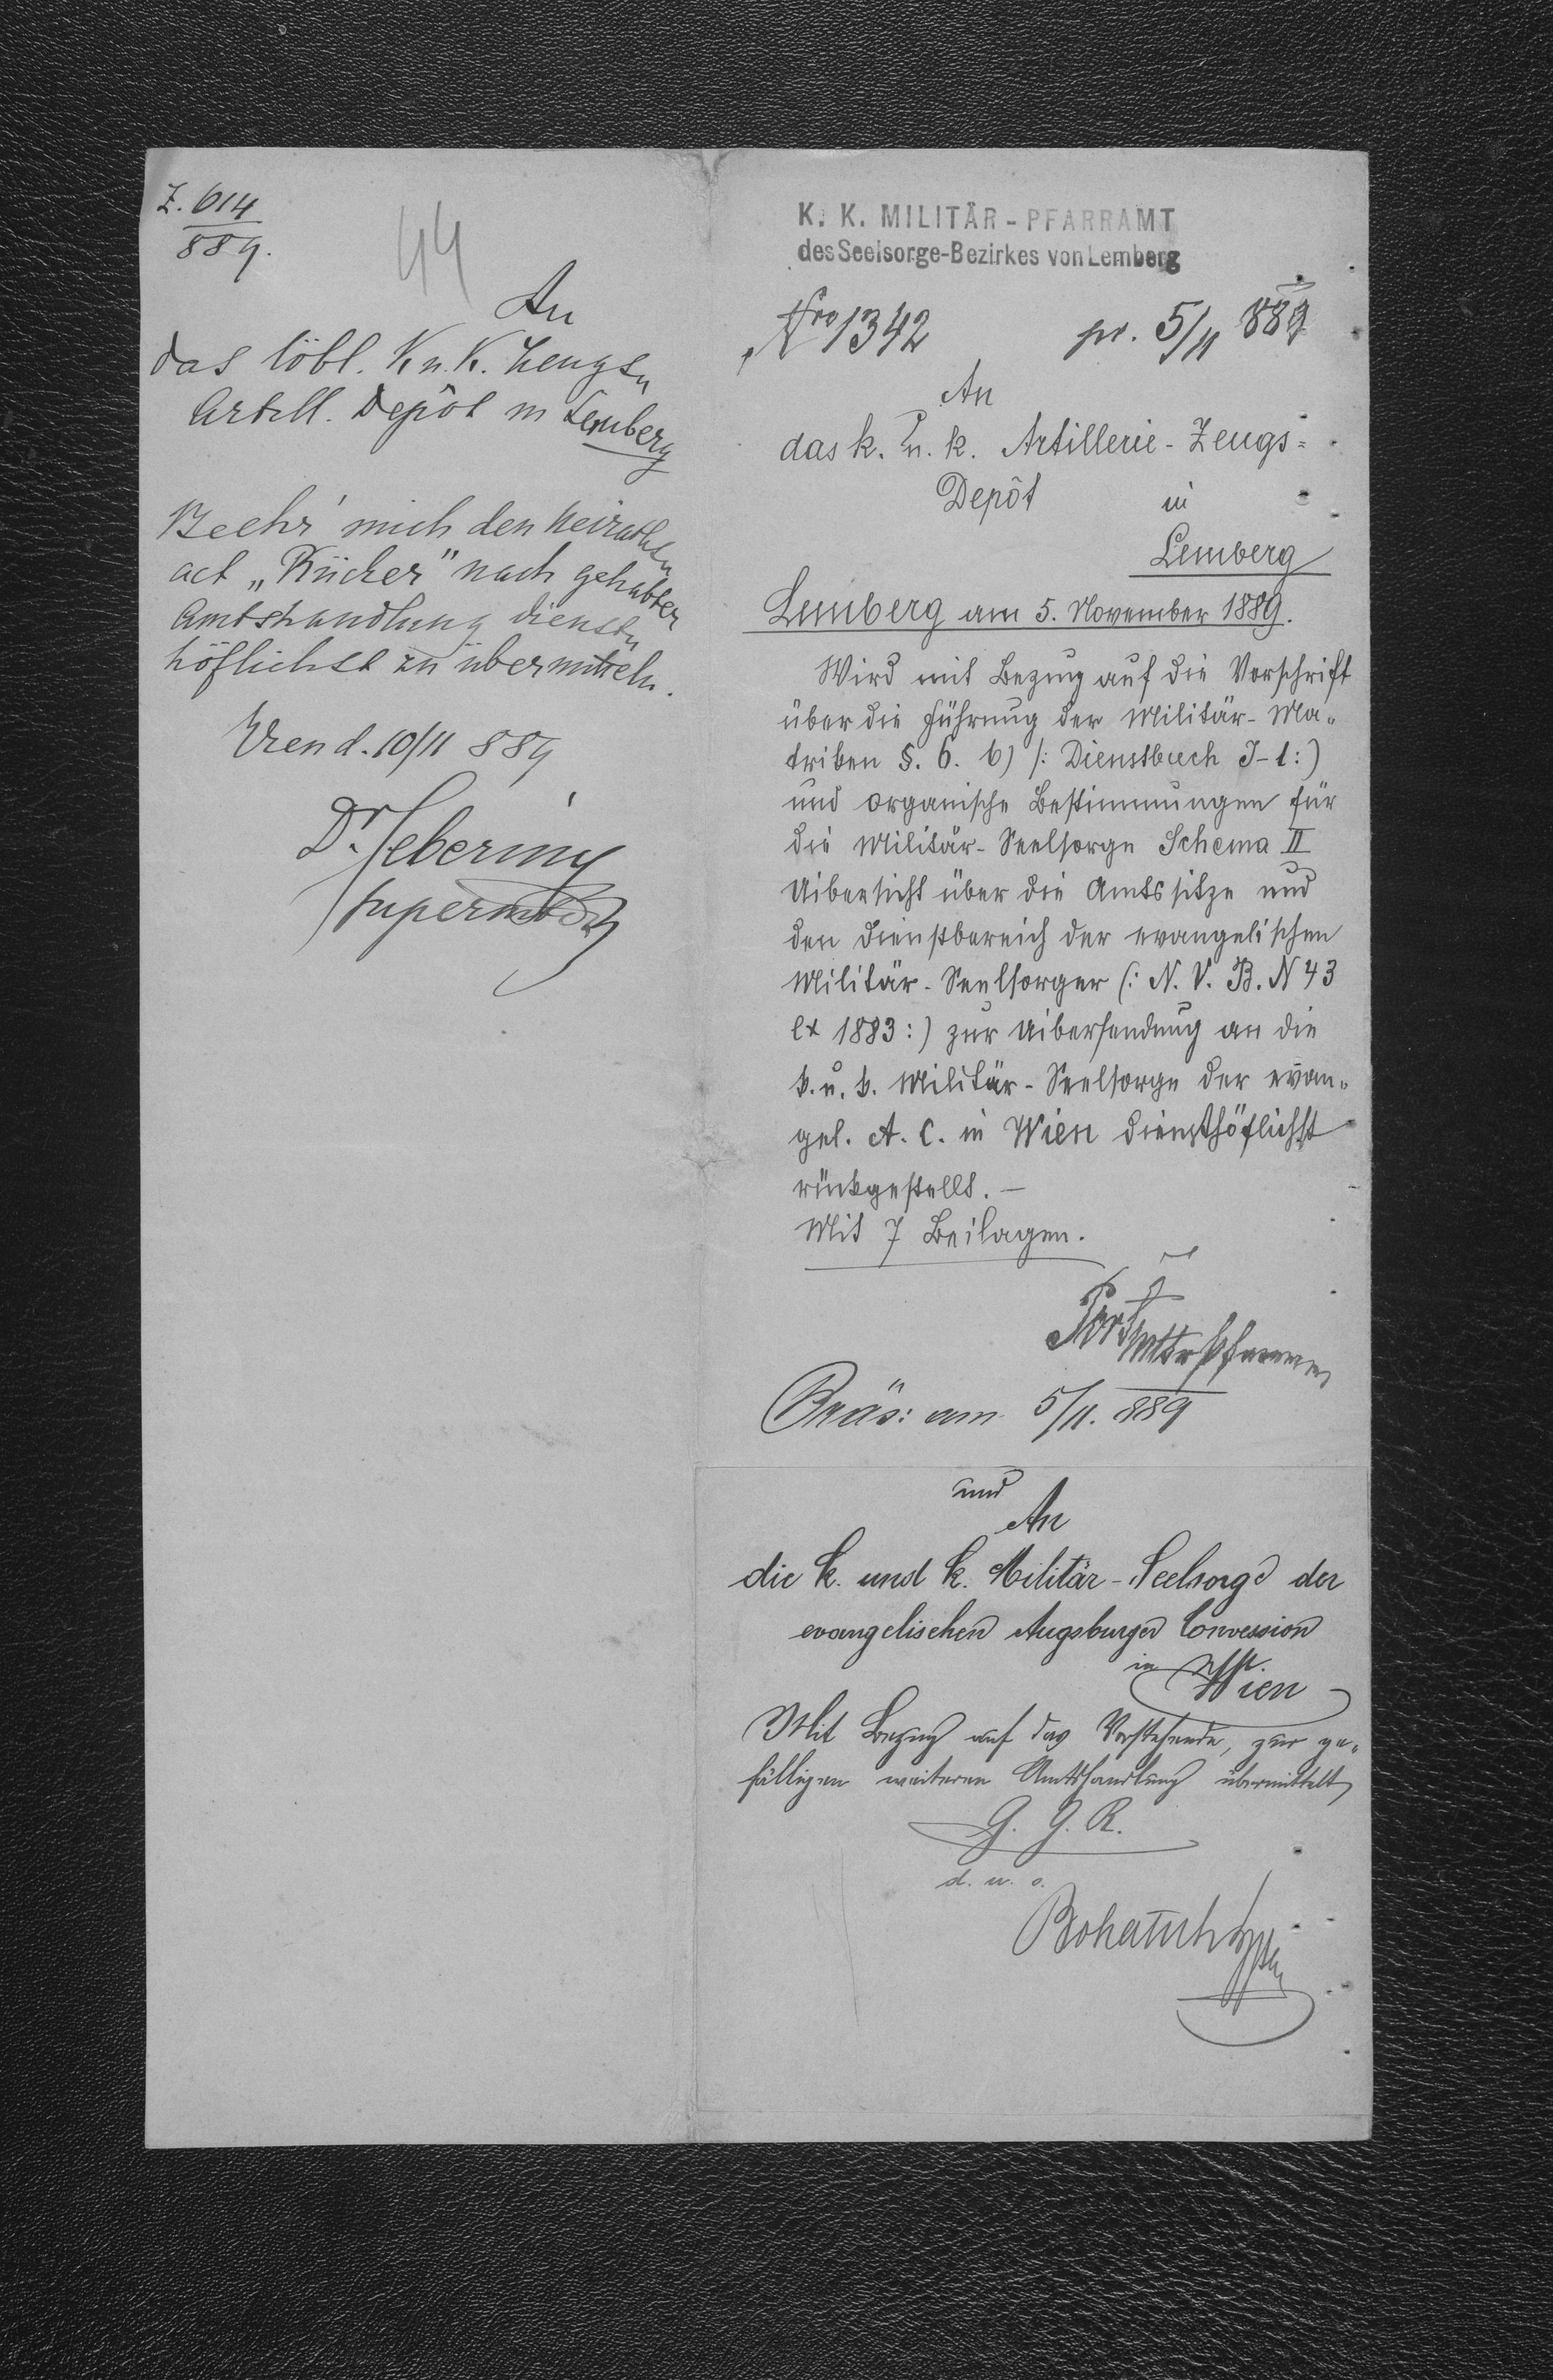 Z. 614
889.
44
An
das löbl. K u. K. Zeugs„
Artill. Depôt in Lemberg
Beehr' mich den Heiraths„
act „Rücker" nach gehabter
Amtshandlung dienst„
höflichst zu übermitteln.
Wien d. 10/11 889
Dr. Seberiny
Superintdt
K. K. MILITÄR-PFARRAMT
des Seelsorge-Bezirkes von Lemberg
Nro 1342 pr. 5/11 889
An
das k. u. k. Artillerie-Zeugs=
Depôt in
Lemberg
Lemberg am 5. November 1889.
Wird mit Bezug auf die Vorschrift
über die Führung der Militär-Ma„
triken §. 6. b) /: Dienstbuch J-1:)
und organische Bestimmungen für
die Militär-Seelsorge Schema II
Uibersicht über die Amtssitze und
den Dienstbereich der evangelischen
Militär-Seelsorger (: N. V. B. N 43
ex 1883:) zur Uibersendung an die
k. u. k. Militär-Seelsorge der evan„
gel. A. C. in Wien diensthöflichst
rückgestellt. —
Mit 7 Beilagen.
Pfarrer
Präs: am 5/11. 889
und
An
die k. und k. Militär-Seelsorge der
evangelischen Augsburger Convession
in Wien
Mit Bezug auf das Vorstehende, zur ge„
fälligen weiteren Amtshandlung übermittelt
G. G. R.
d. u. o.